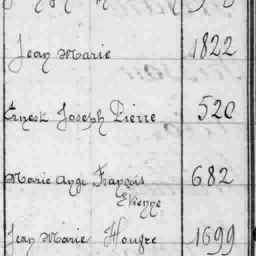 Jean Marie 1822
Ernest Joseph Pierre 520
Marie Ange François 682
Etienne
Jean Marie Hougre 1699